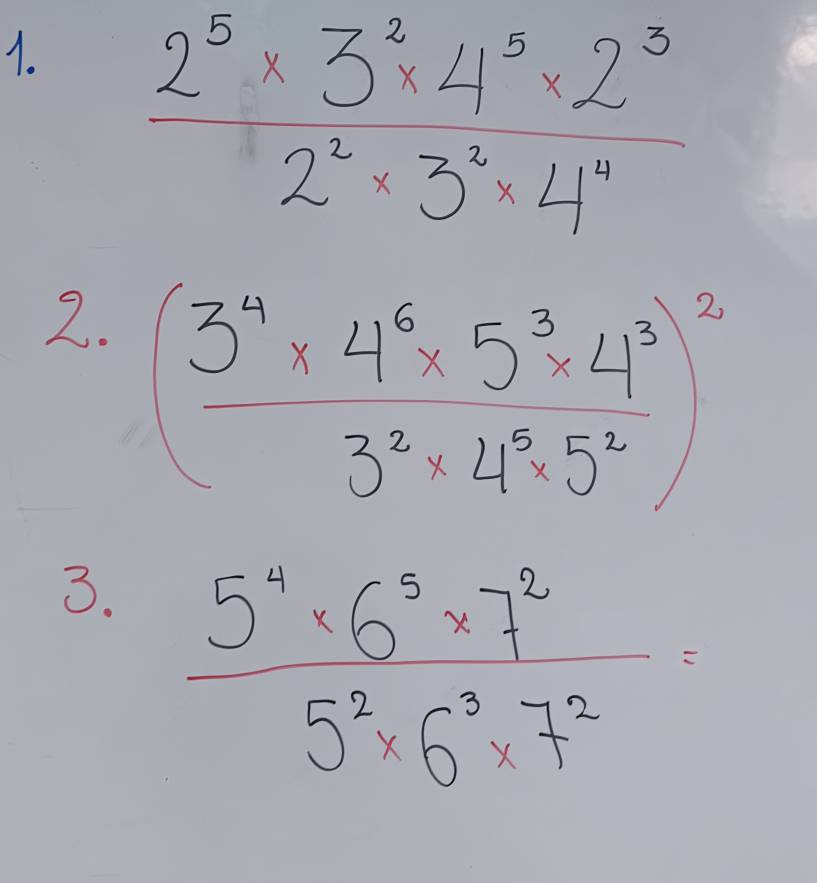 1. 2⁵ × 3² × 4⁵ × 2³
2² × 3² × 4⁴
2. (3⁴ × 4⁶ × 5³ × 4³)²
3² × 4⁵ × 5²
3. 5⁴ × 6⁵ × 7² =
5² × 6³ × 7²